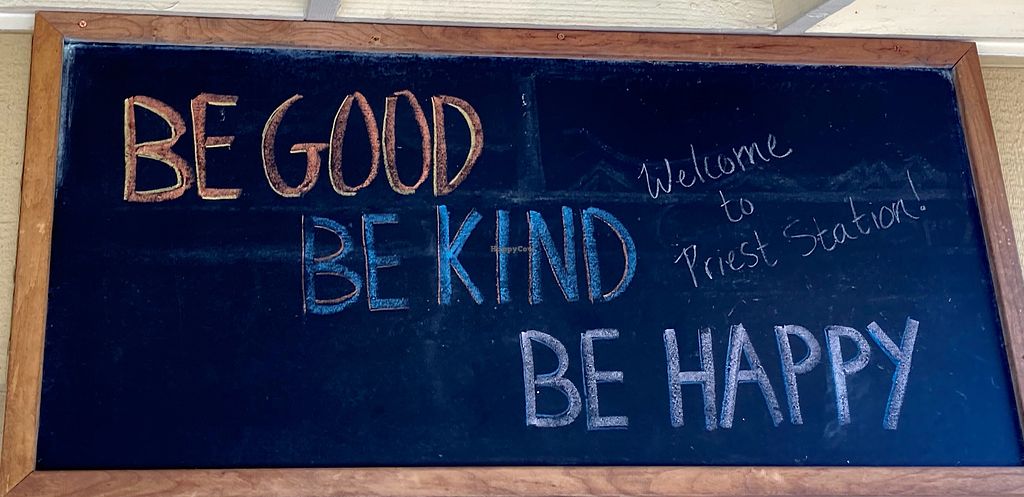 BE GOOD
BE KIND
BE HAPPY
Welcome
to
Priest Station!
HappyCow